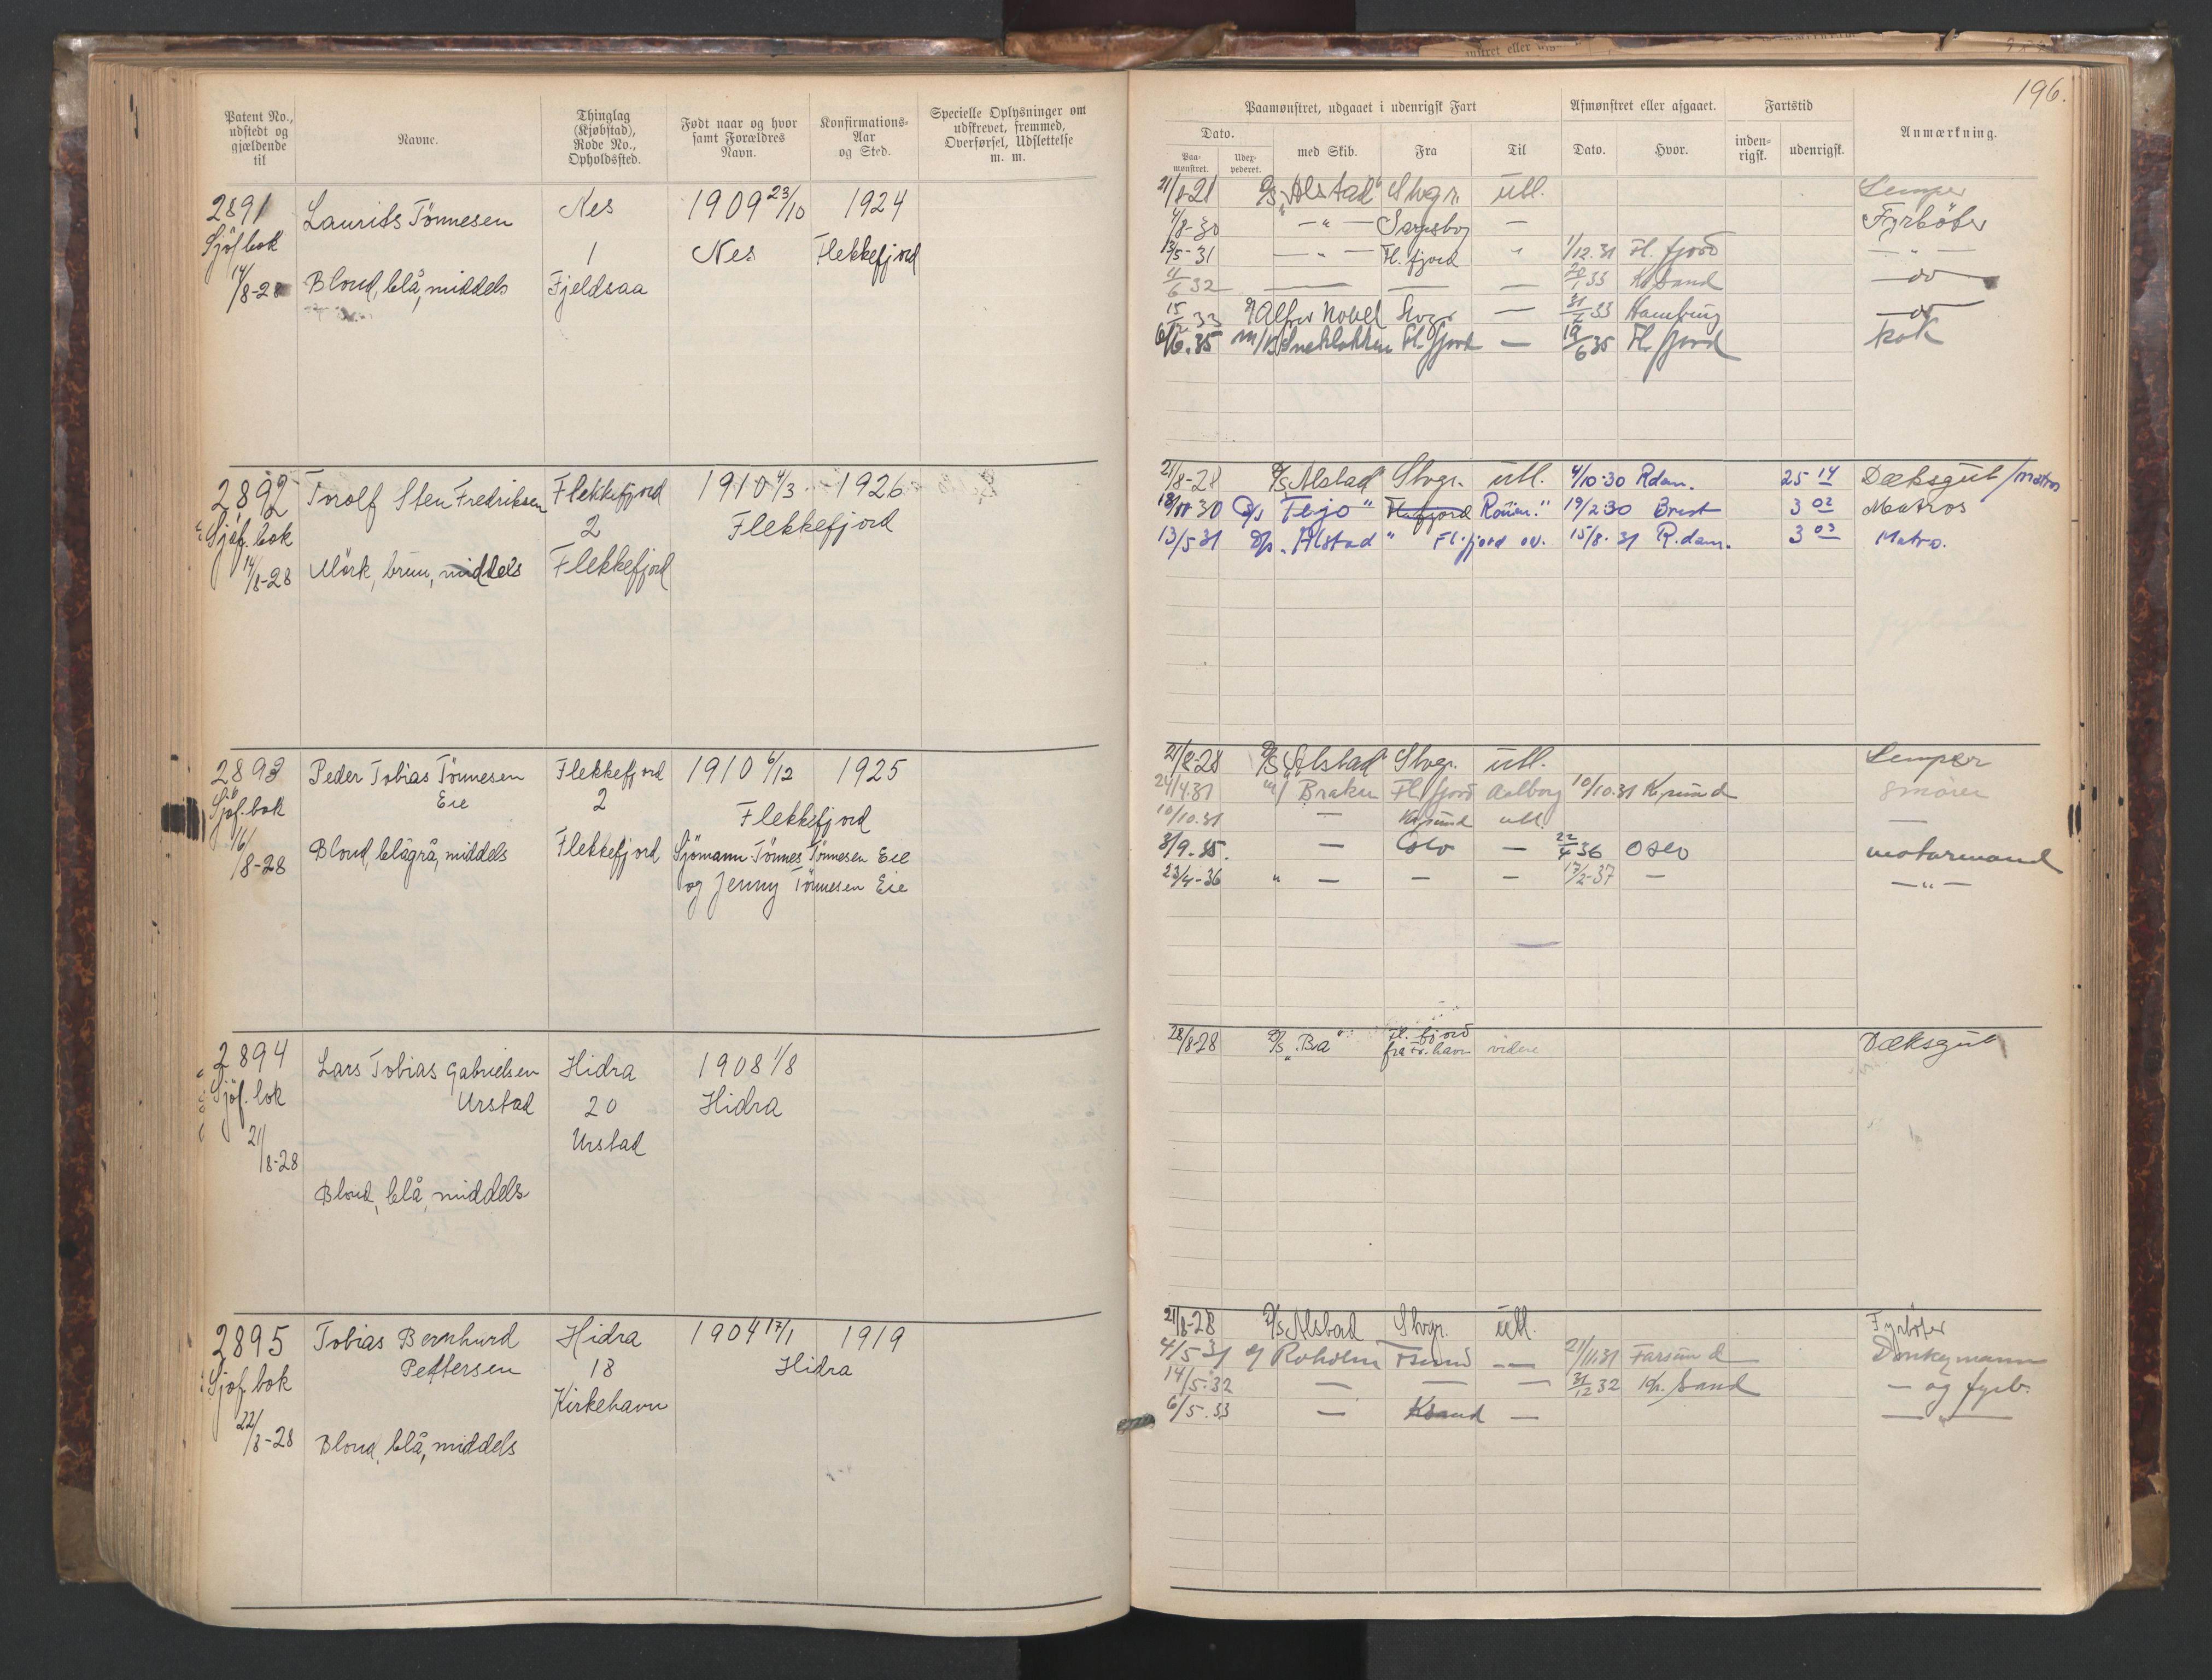 196.
Patent No., udstedt og gjældende til
Navne.
Thinglag (Kjøbstad), Rode No., Opholdssted.
Født naar og hvor samt Forældres Navn.
Konfirmations-Aar og Sted.
Specielle Oplysninger om udskrevet, fremmed, Overførsel, Udslettelse m. m.
Paamønstret, udgaaet i udenrigsk Fart
Afmønstret eller afgaaet.
Fartstid
Anmærkning.
Dato.
Paa-mønstret.
Udex-pederet.
med Skib.
Fra
Til
Dato.
Hvor.
inden-rigsk.
udenrigsk.
2891 Laurits Tönnesen Nes 1909 23/10 1924
Sjöf.bok 1 Nes Flekkefjord
14/8-28 Blond, blå, middels Fjeldsaa
21/8-28 D/S "Alstad" Stvgr. utl. Lemper
4/8-30 — " — Sarpsborg — Fyrböter
13/5-31 — " — Fl. fjord " 1/12.31 Fl. fjord — " —
4/6 32 — — — 20/1 33 Kr.sand — do —
15/2 33 Alfred Nobel Stvgr — 31/2 33 Hamburg — do
6/6.35 m/k Sneklokken Fl. fjord — 19/6 35 Fl. fjord kok
2892 Torolf Sten Fredriksen Flekkefjord 1910 4/3 1926
Sjöf. bok 2 Flekkefjord
14/8-28 Mörk, brun, middels Flekkefjord
21/8-28 D/S Alstad Stvgr. utl. 4/10-30 Rdam. 25 14 Dæksgut/matros
18/11 30 D/s "Feijo" Fl.fjord Rouen." 19/2 30 Brest 3 02 Matros
13/5 31 D/s "Alstad" Fl. fjord ov. 15/8. 31 R.dam. 3 03 Matro.
2893 Peder Tobias Tönnesen Flekkefjord 1910 6/12 1925
Sjöf. bok Eie 2 Flekkefjord
16/8-28 Blond, blågrå, middels Flekkefjord Sjömann Tönnes Tönnesen Eie
og Jenny Tönnesen Eie
21/8-28 D/S "Alstad Stvgr. utl. Lemper
24/4.31 m/ Braken Fl. fjord Aalborg 10/10.31 Kr.sund Smörer
10/10.31 — Kr.sund utl. —
3/9.35. — Oslo — 22/4 36 Oslo motormand
23/4-36 " — — — 17/2-37 — — " —
2894 Lars Tobias Gabrielsen Hidra 1908 1/8
Sjöf. bok Urstad 20 Hidra
21/8-28 Urstad
Blond, blå, middels
28/8-28 D/S "Ba" Fl. fjord
fra Fr.havn videre Dæksgut
2895 Tobias Bernhard Hidra 1904 17/1 1919
Sjöf. bok Pettersen 18 Hidra
22/8-28 Kirkehavn
Blond, blå, middels
21/8-28 D/S Alstad Stvgr. utl. Fyrböter
4/5 31 Roholm Fsund — 21/11.31 Farsund Donkeymann
14/5.32 — — — 31/12 32 Kr. Sand — og fyrb.
6/5.33 — Ksand — — " —